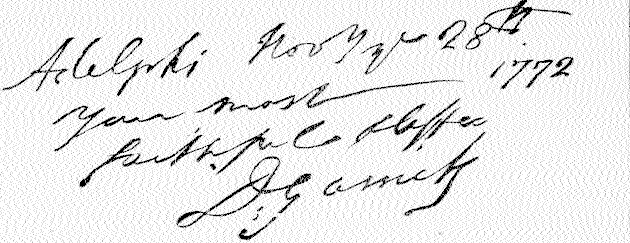 Adelphi Novr ye 28th
1772
Your most
faithful
D: Garrick